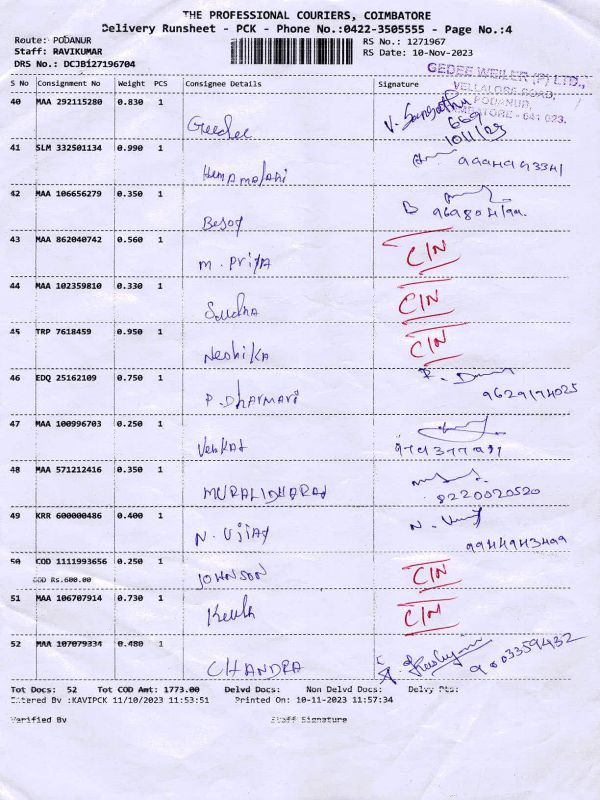 THE PROFESSIONAL COURIERS, COIMBATORE
Delivery Runsheet - PCK - Phone No.:0422-3505555 - Page No.:4
Route: PODANUR RS No.: 1271967
Staff: RAVIKUMAR RS Date: 10-Nov-2023
DRS No.: DCJB127196704
GEDEE WEILER (P) LTD.,
VELLALORE ROAD,
PODANUR,
COIMBATORE - 641 023.
S No Consignment No Weight PCS Consignee Details Signature
40 MAA 292115280 0.830 1
Geedee
669
10/11/23
41 SLM 332501134 0.990 1
Hemamalani
42 MAA 106656279 0.350 1
Besoy B
43 MAA 862040742 0.560 1
M. Priya C/N
44 MAA 102359810 0.330 1
Sudha C/N
45 TRP 7618459 0.950 1
Neshika C/N
46 EDQ 25162109 0.750 1
P. Dharmari 9629174025
47 MAA 100996703 0.250 1
Venkat
48 MAA 571212416 0.350 1
MURALIDHARAN 8220020520
49 KRR 600000486 0.400 1
N. Vijay
9944943499
50 COD 1111993656 0.250 1
COD Rs.600.00
JOHNSON C/N
51 MAA 106707914 0.730 1
C/N
52 MAA 107079334 0.480 1
CHANDRA 9003359432
Tot Docs: 52 Tot COD Amt: 1773.00 Delvd Docs: Non Delvd Docs: Delvy Pts:
Entered By :KAVIPCK 11/10/2023 11:53:51 Printed On: 10-11-2023 11:57:34
Verified By Staff Signature